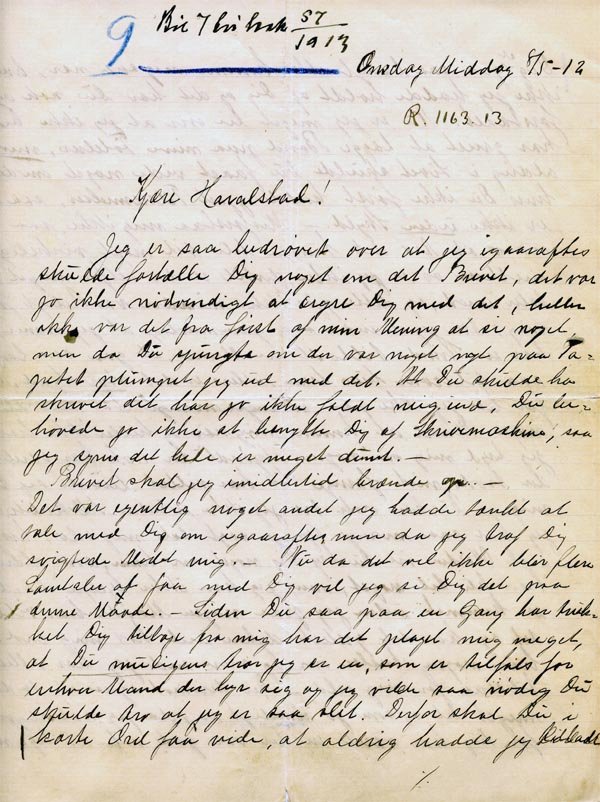 9
Bil 7 57/1913
Onsdag Middag 8/5-12
R. 1163.13
Kjære Havalstad!
Jeg er saa bedrøvet over at jeg igaaraftes
skulde fortælle Dig noget om det Brevet, det var
jo ikke nødvendigt at ærgre Dig med det, heller
ikke var det fra først af min Mening at si noget,
men da Du spurgte om der var noget nyt paa Ta-
petet plumpet jeg ud med det. At Du skulde ha
skrevet det har jo ikke faldt mig ind, Du be-
høvede jo ikke at benytte Dig af Skrivemaskine, saa
jeg synes det hele er meget dumt. —
Brevet skal jeg imidlertid brænde op. —
Det var egentlig noget andet jeg hadde tænkt at
tale med Dig om igaaraftes men da jeg traf Dig
svigtede Modet mig. — Nu da det vel ikke blir flere
Samtaler at faa med Dig vil jeg si Dig det paa
denne Maade. — Siden Du saa paa en Gang har truk-
ket Dig tilbage fra mig har det plaget mig meget,
at Du muligens tror jeg er en, som er tilfals for
enhver Mand der byr sig og jeg vilde saa nødig Du
skulde tro at jeg er saa slet. Derfor skal Du i
korte Ord faa vide, at aldrig hadde jeg
./.